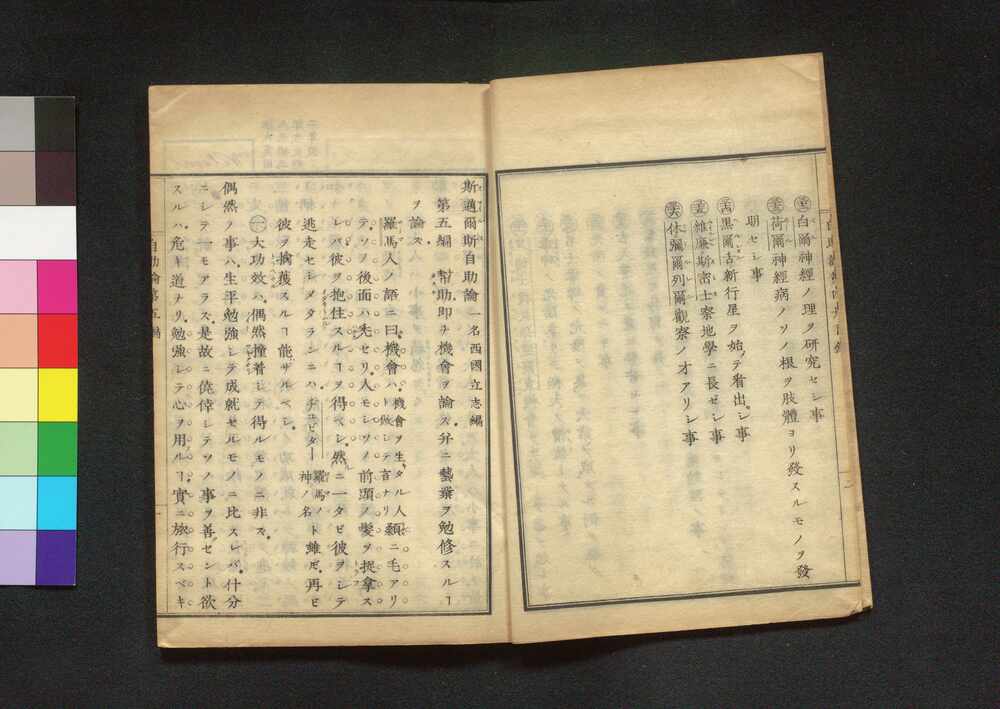 ㊂白爾神經ノ理ヲ研究セシ事
荷爾神經病ノソノ根ヲ肢體ヨリ發スルモノヲ發
明セシ事
黒爾古新行星ヲ始テ看出シ事
維廉斯密士察地學ニ長ゼシ事
休彌爾列爾觀察ノオアリシ事
斯邁爾斯自助論 一名西國立志編
第五編 幇助即チ機會ヲ論ズ并ニ藝業ヲ勉修スルヿ
ヲ論ズ
羅馬人ノ語ニ曰機會ハ機會ヲ生ズル人ト倣シテ言ナリ額ニ毛アリ
テソノ後面ハ禿セリ人モシソノ前頭ノ髪ヲ捉拿ス
レバ彼ヲ抱住スルヿヲ得ベシ然ニ一タビ彼ヲシテ
逃走セシメタランニハ羅馬ノ神ノ名ト雖𪜈再ビ
彼ヲ擒獲スルヿ能ザルベシ
㊀大功效ハ偶然撞着シテ得ルモノニ非ズ
偶然ノ事ハ生平勉強シテ成就セルモノニ比スレバ什分
ニシテ一モアラズ是故ニ僥倖シテソノ事ヲ善セント欲
スルハ危キ道ナリ勉強シテ心ヲ用ルヿ實ニ旅行スベキ
自助論第五編